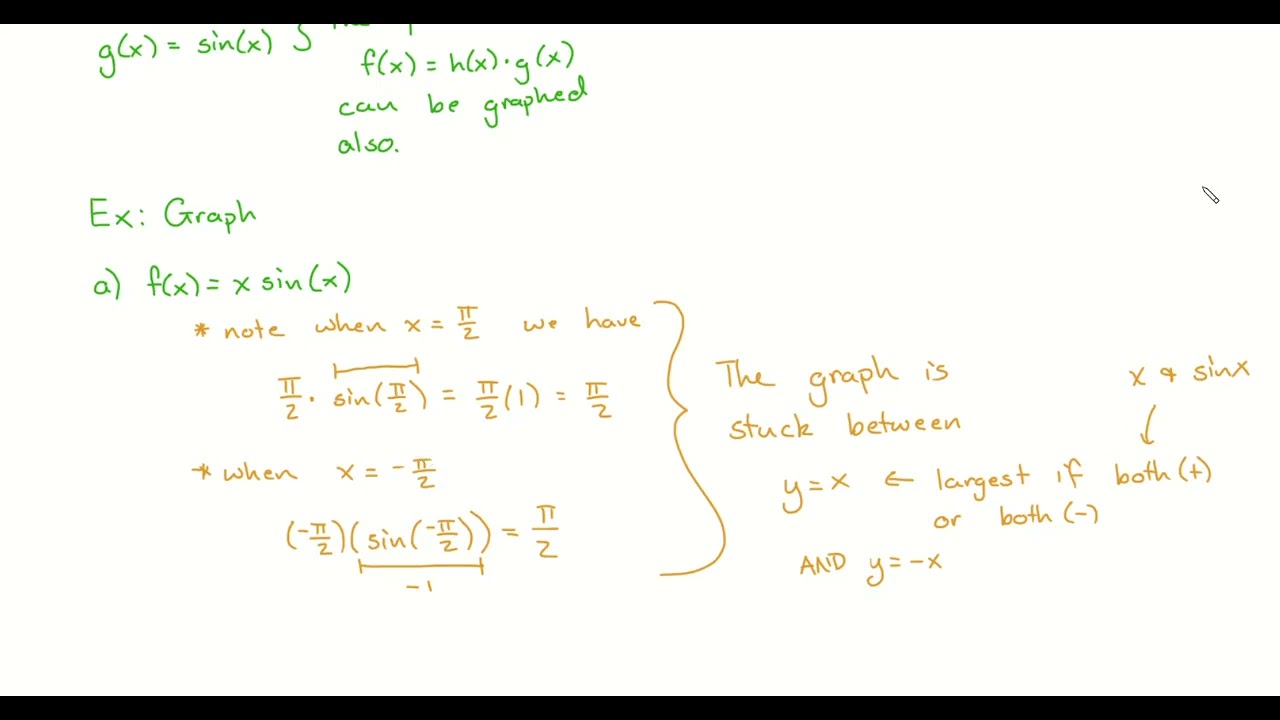 g(x) = sin(x)
f(x) = h(x) · g(x)
can be graphed
also.
Ex: Graph
a) f(x) = x sin(x)
* note when x = π/2 we have
π/2 · sin(π/2) = π/2 (1) = π/2
* when x = -π/2
(-π/2)(sin(-π/2)) = π/2
-1
The graph is
stuck between
y = x ← largest if both (+)
or both (-)
AND y = -x
x & sinx